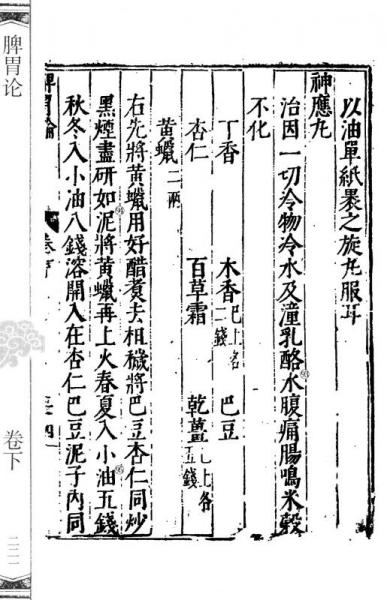 以油單紙裹之旋丸服耳
神應丸
治因一切冷物冷水及潼乳酪水腹痛腸鳴米穀
不化
丁香 木香已上各二錢 巴豆
杏仁 百草霜 乾薑已上各五錢
黃蠟二兩
右先將黃蠟用好醋煑去相穢將巴豆杏仁同炒
黑煙盡研如泥將黃蠟再上火春夏入小油五錢
秋冬入小油八錢溶開入在杏仁巴豆泥子內同
脾胃論
脾胃论
卷下
二二一